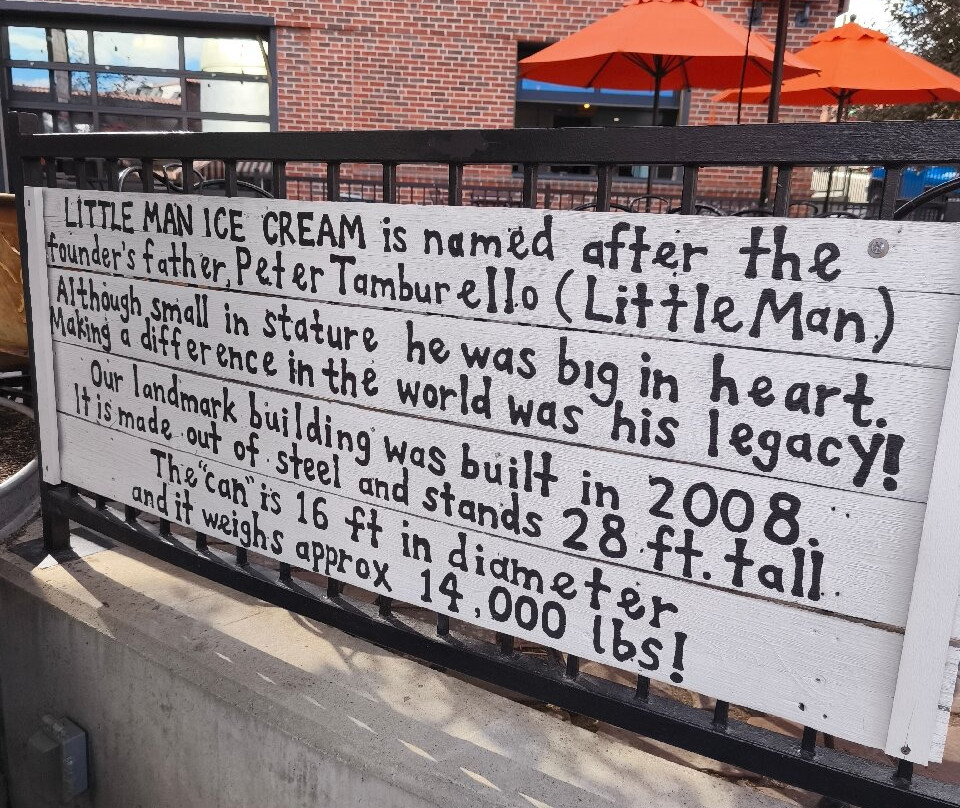 LITTLE MAN ICE CREAM is named after the
founder's father, Peter Tamburello (Little Man.)
Although small in stature he was big in heart.
Making a difference in the world was his legacy!
Our landmark building was built in 2008.
It is made out of steel and stands 28 ft. tall.
The "can" is 16 ft in diameter
and it weighs approx 14,000 lbs!